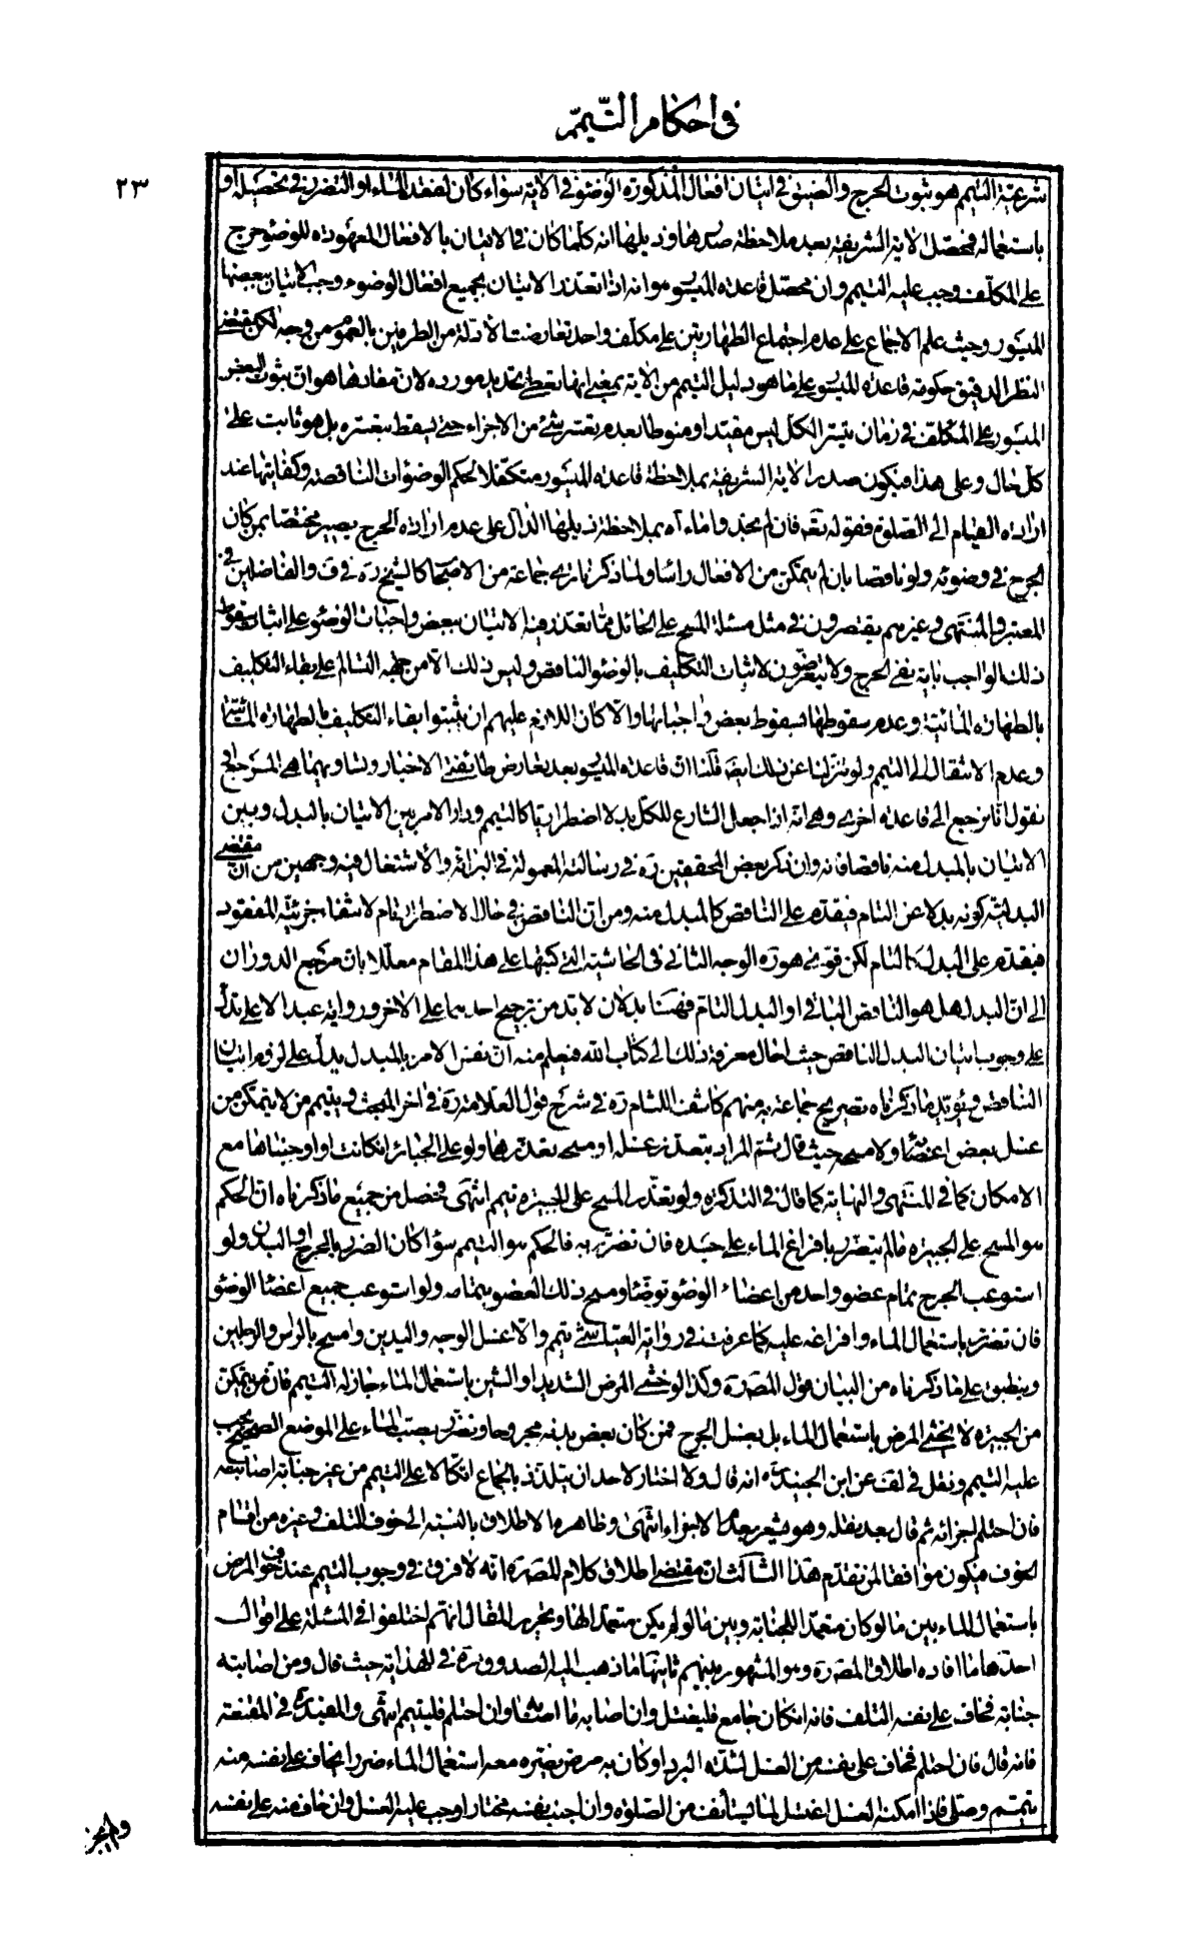 في احكام التيمم
٢٣
شرعية التيمم هو ثبوت الحرج والضيق في اتيان افعال المذكورة الوضوء في الاية سواء كان لفقد الماء او التضرر في تحصيله او
باستعماله فمحصل الاية الشريفة بعد ملاحظة صدرها وذيلها انه كلما كان في الاتيان بالافعال المعهودة للوضوء حرج
على المكلف وجب عليه التيمم وان محصل قاعدة الميسور هو انه اذا تعذر الاتيان بجميع افعال الوضوء وجب الاتيان ببعضها
الميسور وحيث علم الاجماع على عدم اجتماع الطهارتين على مكلف واحد تعارضت الادلة من الطرفين بالعموم من وجه لكن مقتضى
النظر الدقيق حكومة قاعدة الميسور على ما هو دليل التيمم من الاية بمعنى انها تعطى تحديد مورده لان مفادها هو ان ثبوت البعض
الميسور على المكلف في زمان تيسر الكل ليس مقيدا ومنوطا بعدم تعسر شئ من الاجزاء حتى يسقط بتعسره بل هو ثابت على
كل حال وعلى هذا فيكون صدر الاية الشريفة بملاحظة قاعدة الميسور متكفلا لحكم الوضوات الناقصة وكفايتها عند
ارادة القيام الى الصلوة فقوله تعه فان لم تجدوا ماء آه بملاحظة ذيلها الدال على عدم ارادة الحرج يصير مختصا بمن كان
الحرج في وضوئه ولو ناقصا بان لم يتمكن من الافعال راسا ولما ذكرنا ترى جماعة من الاصحاب كالشيخ ره في ف والفاضلين في
المعتبر والمنتهى وغيرهم يقتصرون في مثل مسئلة المسح على الحائل مما تعذر فيه الاتيان ببعض واجبات الوضوء على اثبات سقوط
ذلك الواجب باية نفى الحرج ولا يتعرضون لاثبات التكليف بالوضوء الناقص وليس ذلك الا من جهة التسالم على بقاء التكليف
بالطهارة المائية وعدم سقوطها بسقوط بعض واجباتها والا كان اللازم عليهم ان يثبتوا بقاء التكليف بالطهارة المائية
وعدم الانتقال الى التيمم ولو تنزلنا عن ذلك ايضا قلنا ان قاعدة الميسور بعد تعارض طائفتى الاخبار وتساويهما هى المرجع او
نقول انا نرجع الى قاعدة اخرى وهى انه اذا جعل الشارع للكل بدلا اضطراريا كالتيمم ودار الامر بين الاتيان بالبدل وبين
الاتيان بالمبدل منه ناقصا فانه وان ذكر بعض المحققين ره في رسالته المعمولة في البرائة والاشتغال فيه وجهين من ان مقتضى
البدلية كونه بدلا عن التام فيقدم على الناقص كالمبدل منه ومن ان الناقص في حال الاضطرار تام لانتفاء جزئية المفقود
فيقدم على البدل كالتام لكن قوى هو ره الوجه الثاني في الحاشية التى كتبها على هذا المقام معللا بان مرجع الدوران
الى ان البدل هل هو الناقص الباقي او البدل التام فهنا بدلان لا بد من ترجيح احدهما على الاخر ورواية عبد الاعلى تدل
على وجوب اتيان البدل الناقص حيث احال معرفة ذلك الى كتاب الله فيعلم منه ان نفس الامر بالمبدل يدل على لزوم اتيان
الناقص ويؤيد ما ذكرناه تصريح جماعة به منهم كاشف اللثام ره في شرح قول العلامة ره في اخر المبحث ويتيمم من لا يتمكن من
غسل بعض اعضائه ولا مسحه حيث قال ثم المراد بتعذر غسله او مسحه تعذرهما ولو على الجبائر ان كانت او اوجبناها مع
الامكان كما في المنتهى والنهاية كما قال في التذكرة ولو تعذر المسح على الجبيرة تيمم انتهى فتحصل من جميع ما ذكرناه ان الحكم
هو المسح على الجبيرة ما لم يتضرر بافراغ الماء على جسده فان تضرر به فالحكم هو التيمم سواء كان الضرر بالجرح او البدن ولو
استوعب الجرح تمام عضو واحد من اعضاء الوضوء توضأ ومسح ذلك العضو بتمامه ولو استوعب جميع اعضاء الوضوء
فان تضرر باستعمال الماء وافراغه عليه كما عرفت في رواية العياشي تيمم والا غسل الوجه واليدين وامسح بالراس والرجلين
وينطبق على ما ذكرناه من البيان قول المصره وكذا لو خشى المرض الشديد او الشين باستعمال الماء جاز له التيمم فان من يتمكن
من الجبيرة لا يخشى المرض باستعمال الماء بل بغسل الجرح فمن كان بعض بدنه مجروحا وتضرر بصب الماء على الموضع الصحيح يجب
عليه التيمم ونقل في لف عن ابن الجنيد ره انه قال ولا اختار لاحد ان يتلذذ بالجماع اتكالا على التيمم من غير جنابة اصابته
فان احتلم اجزائه ثم قال بعد نقله وهو مشعر بعدم الاجزاء انتهى وظاهره الاطلاق بالنسبة الى خوف التلف وغيره من اقسام
الخوف فيكون موافقا لمن تقدم هذا الثالث ان مقتضى اطلاق كلام المصره انه لا فرق في وجوب التيمم عند خوف المرض
باستعمال الماء بين ما لو كان متعمدا للجنابة وبين ما لو لم يكن متعمدا لها وتحرير المقال انهم اختلفوا في المسئلة على اقوال
احدها ما افاده اطلاق المصره وهو المشهور بينهم ثانيها ما ذهب اليه الصدوق ره في الهداية حيث قال ومن اصابته
جنابة فخاف على نفسه التلف فانه ان كان جامع فليغتسل وان اصابه ما اصابه وان احتلم فليتيمم انتهى والمفيد ره في المقنعة
فانه قال فان احتلم فخاف على نفسه من الغسل لشدة البرد او كان به مرض يضره معه استعمال الماء ضررا يخاف على نفسه منه
تيمم وصلى فاذا امكنه الغسل اغتسل لما يستأنف من الصلوة وان اجنب نفسه مختارا وجب عليه الغسل وان خاف منه على نفسه
ولم يجز